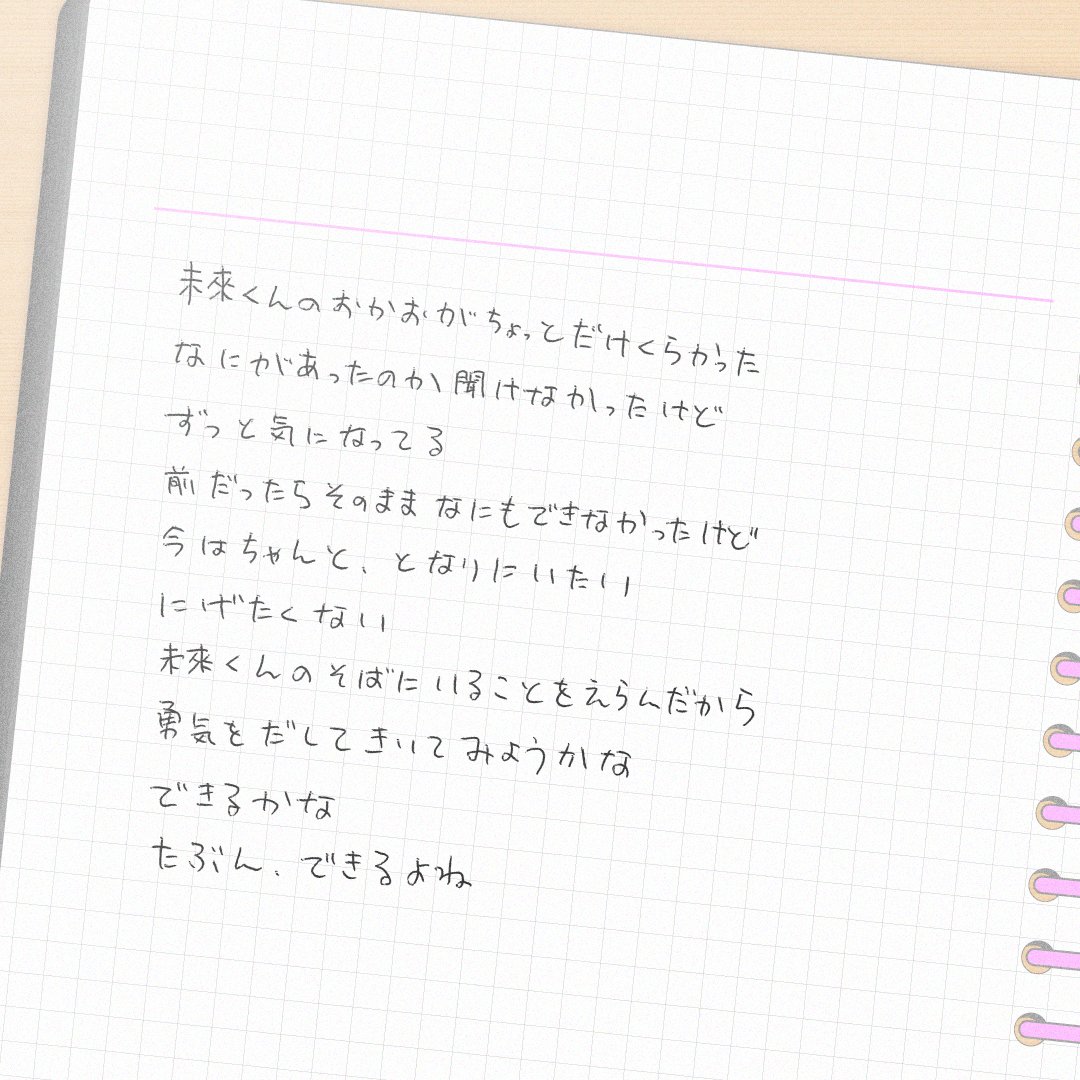 未來くんのおかおがちょっとだけくらかった
なにがあったのか聞けなかったけど
ずっと気になってる
前だったらそのままなにもできなかったけど
今はちゃんと、となりにいたい
にげたくない
未來くんのそばにいることをえらんだから
勇気をだしてきいてみようかな
できるかな
たぶん、できるよね